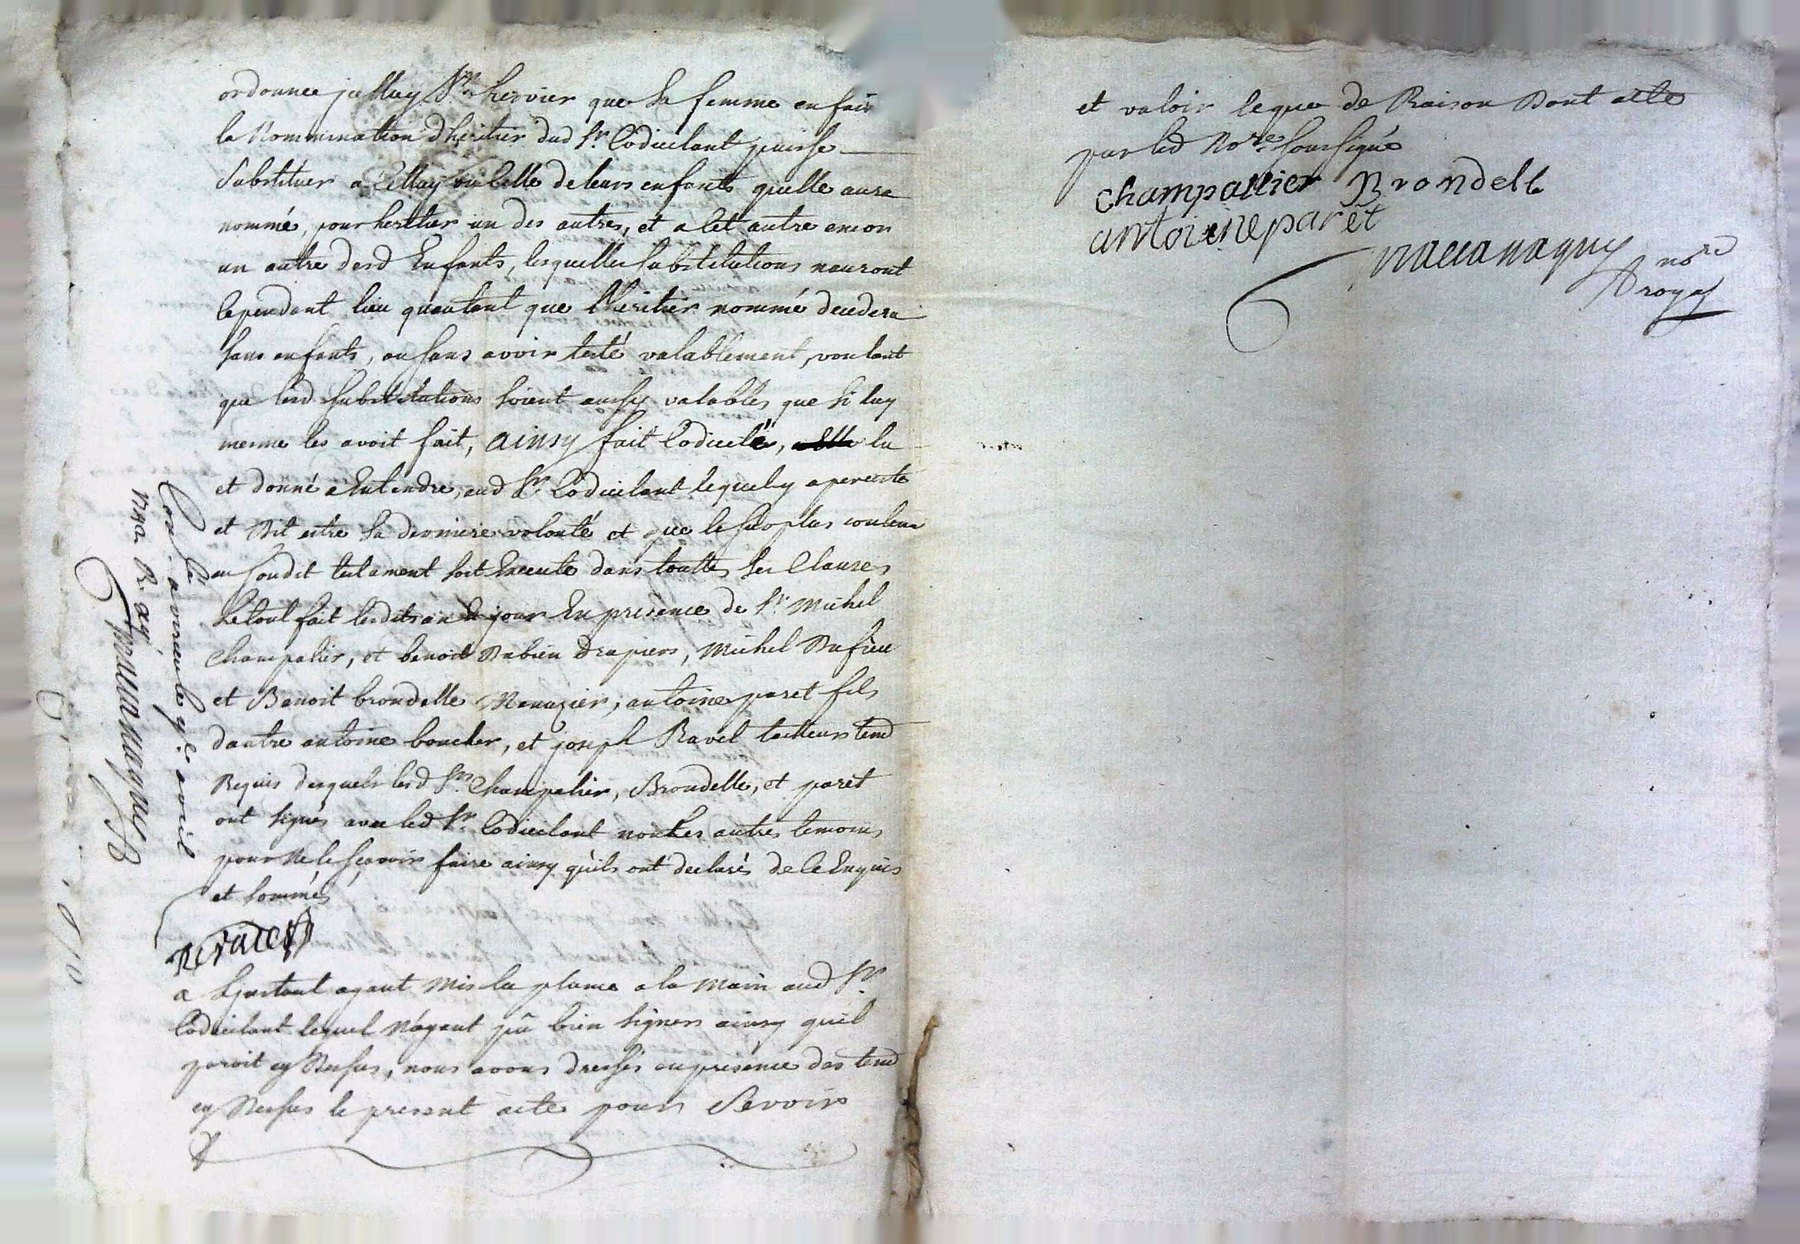 ordonnee jcelluy Sr. hervier que Sa femme en fair
la Nommination d'heritier dud Sr. Codicilant puisse
Substituer a Celluy ou Celle de leurs enfants quelle aura
nommé, pour heritier un des autres, et a Cet autre encor
un autre desd Enfants, lesquelles substitutions nauront
Cependant lieu quautant que l'heritier nommé decedera
Sans enfants, ou sans avoir testé valablement, voulant
que lesd Substitutions Soient aussy valables que Si luy
mesme les avoit fait, ainsy fait Codicilé, lu
et donné a Entendre, aud Sr. Codicilant lequel y a persisté
et Dit estre Sa derniere volonté et que le Surplus contenu
en Sondit testament soit Execute dans touttes Ses Clauses
Le tout fait lesdits an & jour En presence de Sr Michel
Champalier, et benoit Babien Drapiers, Michel Dufieu
et Benoit brondelle Menuzier, antoine paret fils
dautre antoine boucher, et joseph Ravel tailleurs tem
Requis desquels lesd Srs. Champalier, Brondelle, et paret
ont signés avec led Sr. Codicilant non les autres temoins
pour Ne le sçavoir faire ainsy qu'ils ont declarés de Ce Enquis
et Sommés
a Linstant ayant Mis la plume a la Main aud Sr.
Codicilant lequel N'ayant pû bien signer ainsy quil
paroit cy Dessus, nous avons dressés en presence des tem
cy Dessus le present acte pour Servoir
Conlé a vircule 9e avril
et valoir Ceque de Raison Dont acte
par led Nore. soussigné
champallier Brondell
antoine paret
nore
royal